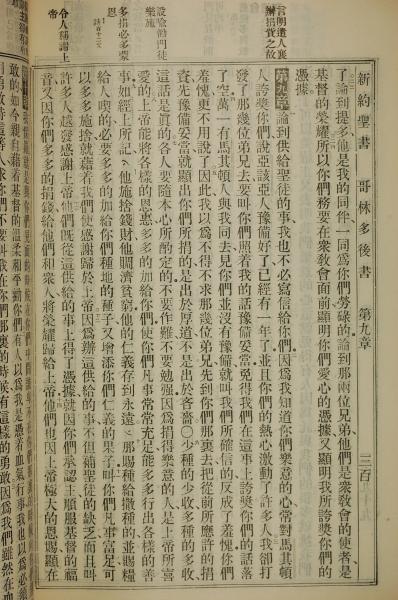 新約聖書 哥林多後書 第九章 三百
了論到提多他是我的同伴一同爲你們勞碌的論到那兩位兄弟他們是衆教會的使者是
基督的榮耀所以你們務要在衆教會面前顯明你們愛心的憑據又顯明我所誇獎你們的
憑據
第九章論到供給聖徒的事我也不必寫信給你們因爲我知道你們樂意的心常對馬其頓
人誇獎你們說亞該亞人豫備好了已經有一年了並且你們的熱心激動了許多人我卻打
發了那幾位弟兄去要叫你們照着我的話豫備妥當免得我們在這事上誇獎你們的話落
了空萬一有馬其頓人與我同去見你們並沒有豫備就叫我們所確信的反成了羞愧你們
羞愧更不用說了因此我以爲不得不求那幾位弟兄先到你們那裏去把從前所應許的捐
資先豫備妥當就顯出你們所捐的是出於厚道不是出於吝嗇〇少種的少收多種的多收
這話是眞的各人要隨本心所酌定的不要作難不要勉強因爲捐得樂意的人是上帝所喜
愛的上帝能將各樣的恩惠多多的加給你們使你們凡事常常充足能多多行出各樣的善
事如經上所記他施捨錢財他賙濟貧窮他的仁義存到永遠那賜種給撒種的並賜糧
給人喫的必要多多的加給你們種地的種子又增添你們仁義的果子叫你們凡事富足可
以多多施捨就藉着我們使感謝歸於上帝因爲辦這供給的事不但補聖徒的缺乏而且叫
許多人越發感謝上帝他們旣從這供給的事上得了憑據就因你們承認主順服基督的福
音又因你們多多的捐錢給他們和衆人將榮耀歸給上帝他們也因上帝極大的恩賜顯在
言明遣人襄
辦捐資之故
設喻勸門徒
樂施
多捐必多蒙
恩
令人稱謝上
帝